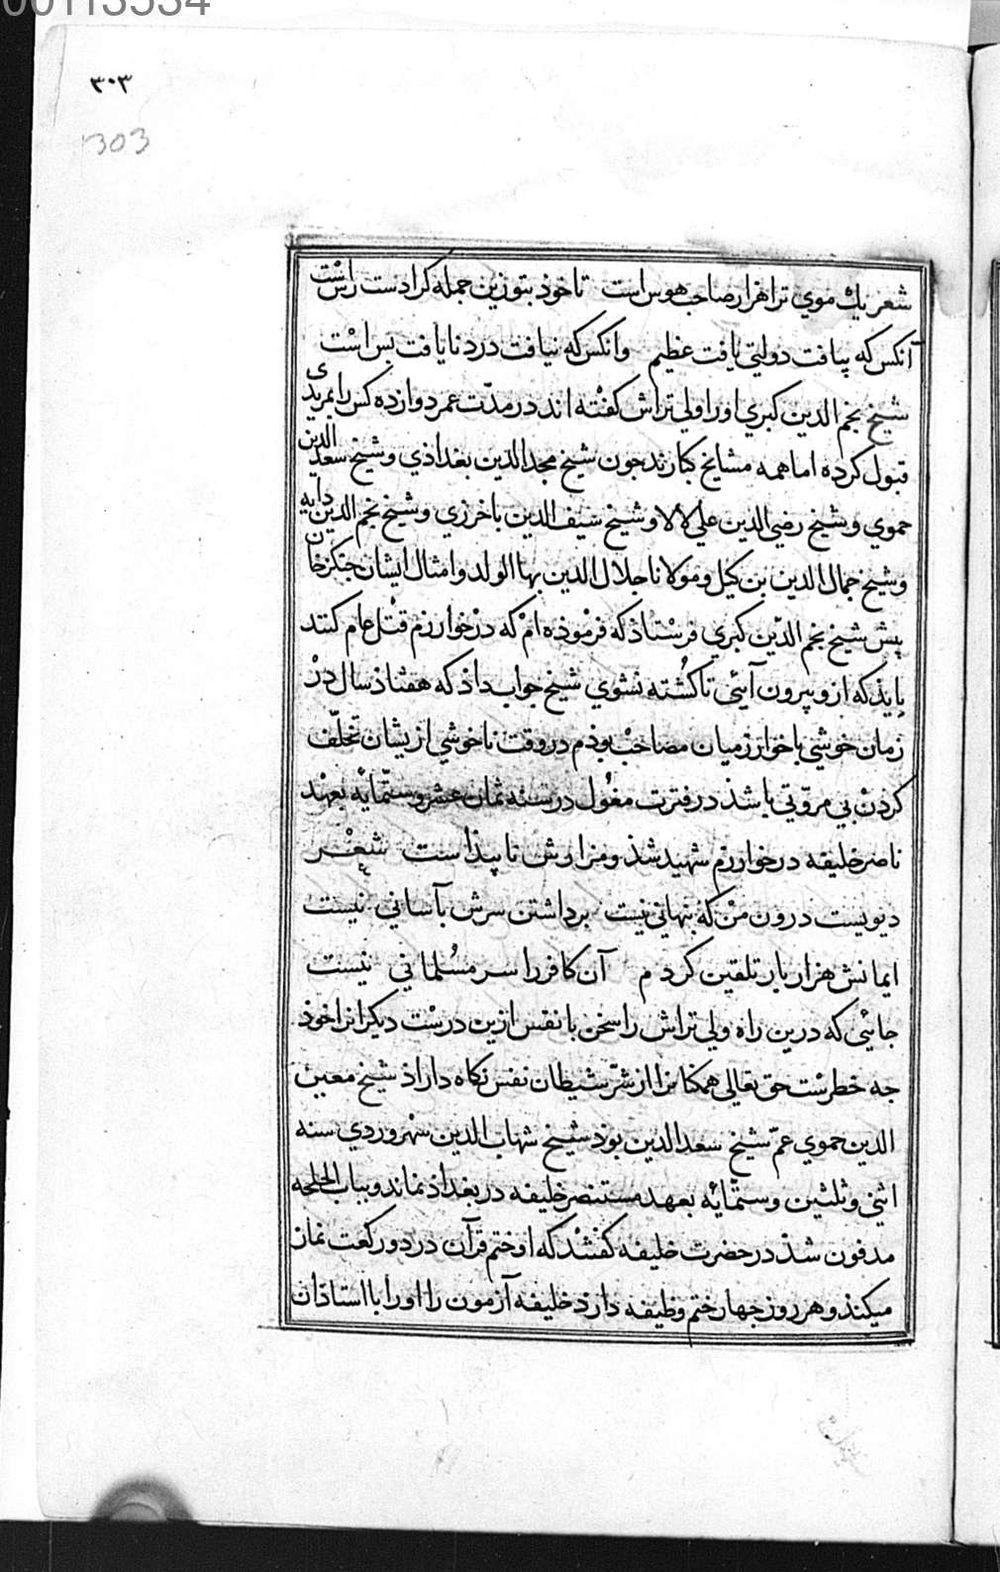 00113534
٣٠٣
303
شعر يك موي ترا هزار صاحب هوس است تا خوذ بتو زين جمله كرا دست رسست
آنكس كه بيافت دولتي يافت عظيم وانكس كه نيافت درد نايافت بس است
شيخ نجم الدين كبري اورا ولي تراش كفته اند در مدّت عمر دوازده كس را بمريدى
قبول كرده اما همه مشايخ كبارند جون شيخ مجد الدين بغداذي و شيخ سعد الدين
حموي و شيخ رضي الدين علي لالا و شيخ سيف الدين باخرزي و شيخ نجم الدين دايه
و شيخ جمال الدين بن كيل و مولانا جلال الدين بها الولد و امثال ايشان جنكز خان
پيش شيخ نجم الدّين كبري فرستاذ كه فرموذه ام كه در خوارزم قتل عام كنند
بايذ كه ازو بيرون آيئى تا كُشته نشوي شيخ جواب داذ كه هفتاذ سال در
زمان خوشي با خوارزميان مصاحب بوذم در وقت ناخوشي ازيشان تخلّف
كردن بي مروّتي باشذ در فترت مغول در سنه ثمان عشر و ستّمايه بعهد
ناصر خليفه در خوارزم شهيد شذ و مزارش ناپيذاست شعر
ديويست درون من كه پنهاني نيست برداشتن سرش بآساني نيست
ايمانش هزار بار تلقين كردم آن كافر را سر مسلماني نيست
جائي كه درين راه ولي تراش را سخن با نفس ازين درست ديكرانرا خوذ
جه خطرست حق تعالى همكانرا از شرّ شيطان نفس نكاه داراذ شيخ معين
الدين حموي عمّ شيخ سعد الدين بوذ شيخ شهاب الدين سهروردي سنه
اثني و ثلثين و ستّمايه بعهد مستنصر خليفه در بغداذ نماند و بباب الحلحه
مدفون شذ در حضرت خليفه كفتند كه او ختم قرآن در دو ركعت نماز
ميكنذ و هر روز جهار ختم وظيفه دارد خليفه آزمون را اورا با استاذان